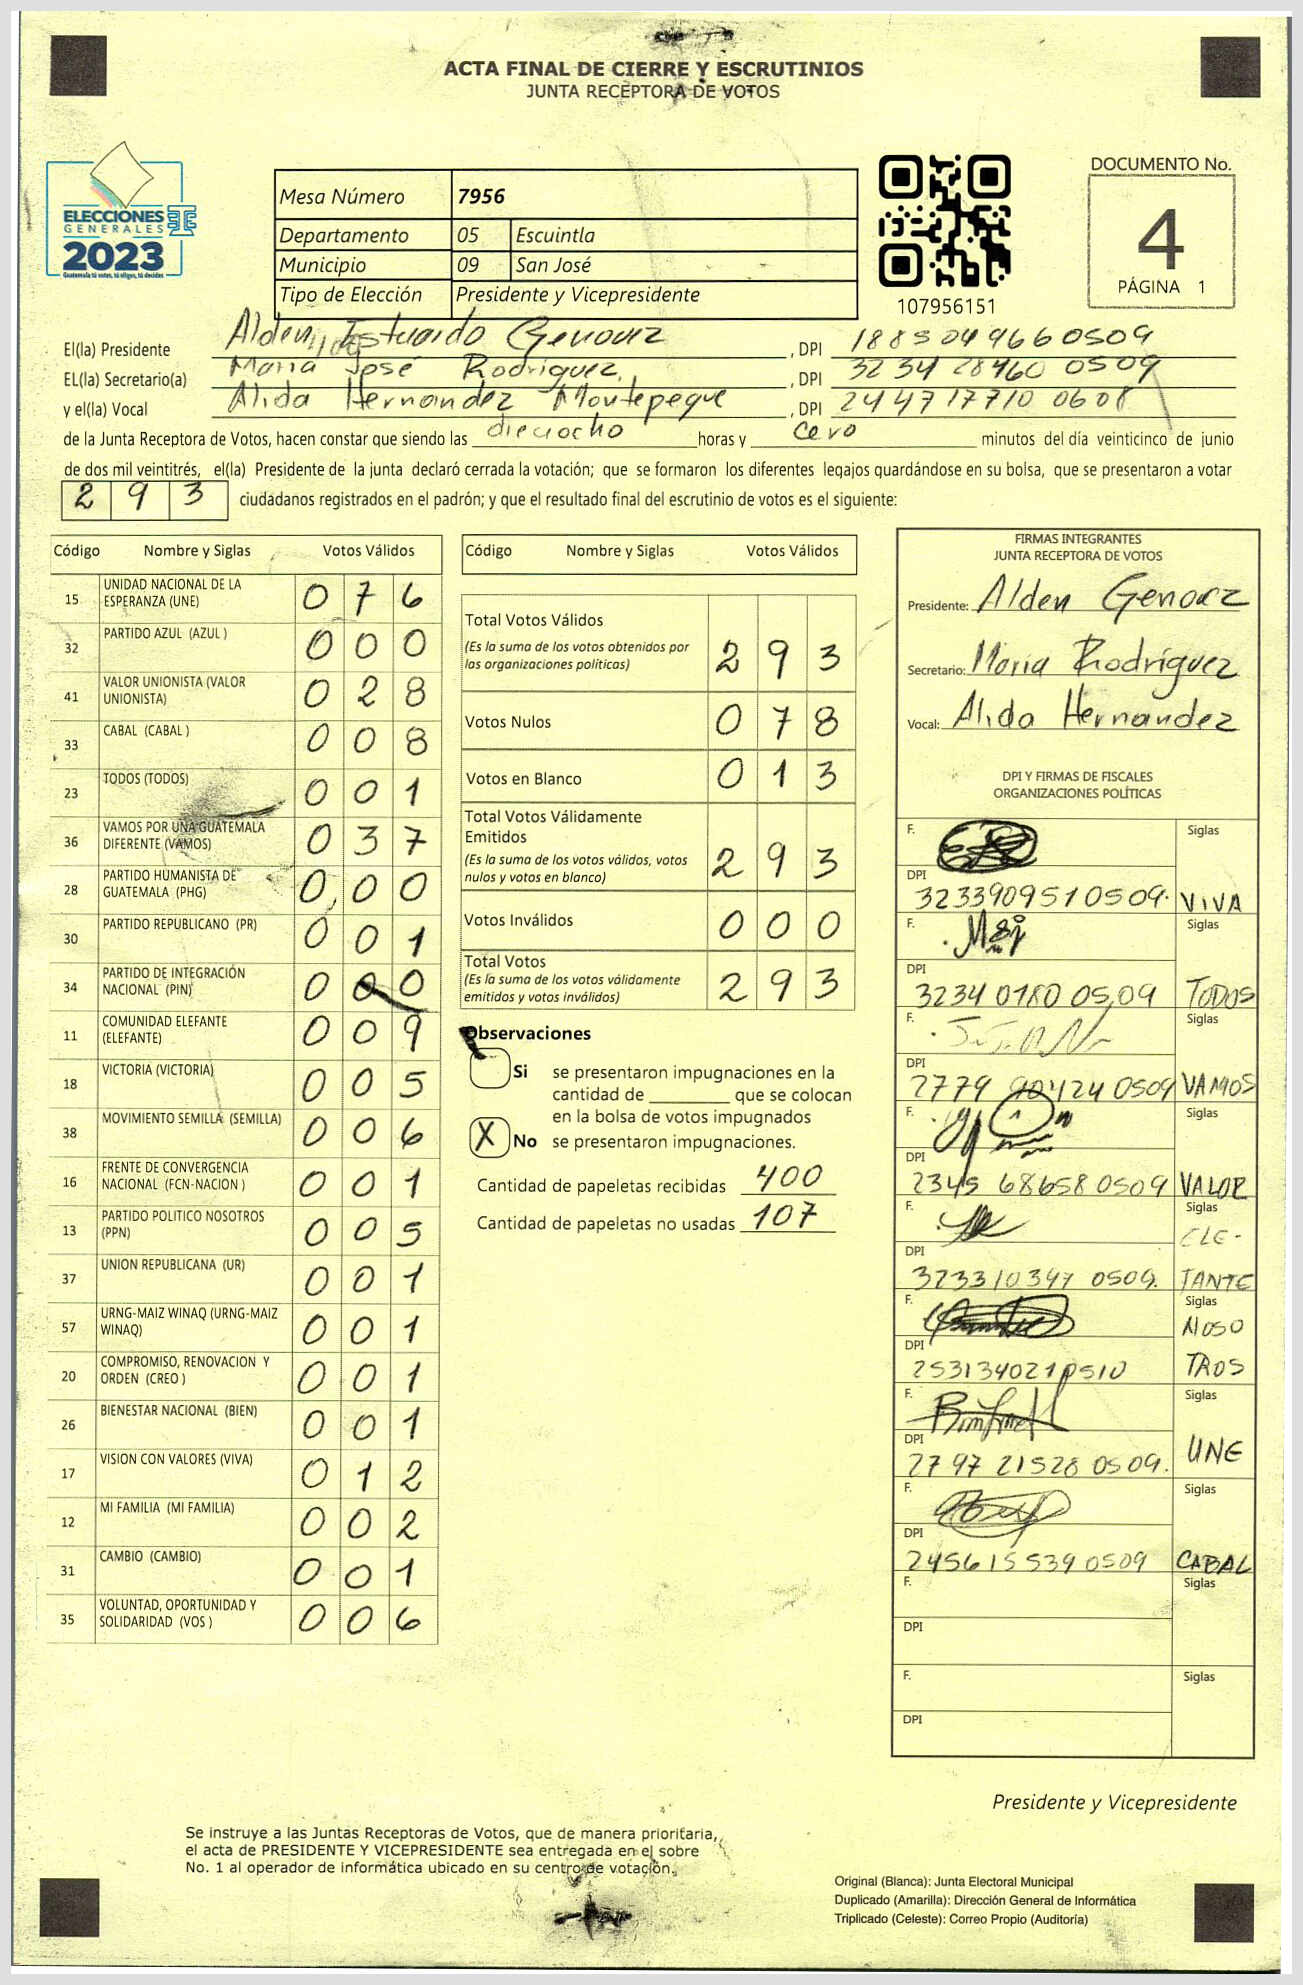 ACTA FINAL DE CIERRE Y ESCRUTINIOS
JUNTA RECEPTORA DE VOTOS
ELECCIONES
GENERALES
2023
Guatemala tú votas, tú eliges, tú decides
Mesa Número 7956
Departamento 05 Escuintla
Municipio 09 San José
Tipo de Elección Presidente y Vicepresidente
107956151
DOCUMENTO No.
4
PÁGINA 1
El(la) Presidente Alden Estuardo Genoez , DPI 1885049660509
EL(la) Secretario(a) Maria José Rodriguez , DPI 3234 28460 0509
y el(la) Vocal Alida Hernandez Montepeque , DPI 244717710 0608
de la Junta Receptora de Votos, hacen constar que siendo las dieciocho horas y cero minutos del día veinticinco de junio
de dos mil veintitrés, el(la) Presidente de la junta declaró cerrada la votación; que se formaron los diferentes legajos guardándose en su bolsa, que se presentaron a votar
293 ciudadanos registrados en el padrón; y que el resultado final del escrutinio de votos es el siguiente:
Código Nombre y Siglas Votos Válidos
15 UNIDAD NACIONAL DE LA ESPERANZA (UNE) 0 7 6
32 PARTIDO AZUL (AZUL ) 0 0 0
41 VALOR UNIONISTA (VALOR UNIONISTA) 0 2 8
33 CABAL (CABAL ) 0 0 8
23 TODOS (TODOS) 0 0 1
36 VAMOS POR UNA GUATEMALA DIFERENTE (VAMOS) 0 3 7
28 PARTIDO HUMANISTA DE GUATEMALA (PHG) 0 0 0
30 PARTIDO REPUBLICANO (PR) 0 0 1
34 PARTIDO DE INTEGRACIÓN NACIONAL (PIN) 0 0 0
11 COMUNIDAD ELEFANTE (ELEFANTE) 0 0 9
18 VICTORIA (VICTORIA) 0 0 5
38 MOVIMIENTO SEMILLA (SEMILLA) 0 0 6
16 FRENTE DE CONVERGENCIA NACIONAL (FCN-NACION ) 0 0 1
13 PARTIDO POLITICO NOSOTROS (PPN) 0 0 5
37 UNION REPUBLICANA (UR) 0 0 1
57 URNG-MAIZ WINAQ (URNG-MAIZ WINAQ) 0 0 1
20 COMPROMISO, RENOVACION Y ORDEN (CREO ) 0 0 1
26 BIENESTAR NACIONAL (BIEN) 0 0 1
17 VISION CON VALORES (VIVA) 0 1 2
12 MI FAMILIA (MI FAMILIA) 0 0 2
31 CAMBIO (CAMBIO) 0 0 1
35 VOLUNTAD, OPORTUNIDAD Y SOLIDARIDAD (VOS ) 0 0 6
Código Nombre y Siglas Votos Válidos
Total Votos Válidos
(Es la suma de los votos obtenidos por
las organizaciones políticas) 2 9 3
Votos Nulos 0 7 8
Votos en Blanco 0 1 3
Total Votos Válidamente
Emitidos
(Es la suma de los votos válidos, votos
nulos y votos en blanco) 2 9 3
Votos Inválidos 0 0 0
Total Votos
(Es la suma de los votos válidamente
emitidos y votos inválidos) 2 9 3
Observaciones
Si se presentaron impugnaciones en la
cantidad de ________ que se colocan
en la bolsa de votos impugnados
X No se presentaron impugnaciones.
Cantidad de papeletas recibidas 400
Cantidad de papeletas no usadas 107
FIRMAS INTEGRANTES
JUNTA RECEPTORA DE VOTOS
Presidente: Alden Genoez
Secretario: Maria Rodríguez
Vocal: Alida Hernandez
DPI Y FIRMAS DE FISCALES
ORGANIZACIONES POLÍTICAS
F. Siglas
DPI 3233909510509. VIVA
F. Siglas
DPI 3234 0180 0509 TODOS
F. Siglas
DPI 2779 90424 0509 VAMOS
F. Siglas
DPI 2345 68658 0509 VALOR
F. Siglas
DPI 323310347 0509. ELE-FANTE
F. Siglas
DPI 2531340210510 NOSOTROS
F. Siglas
DPI 2797 21528 0509. UNE
F. Siglas
DPI 245615539 0509 CABAL
F. Siglas
DPI
F. Siglas
DPI
Presidente y Vicepresidente
Se instruye a las Juntas Receptoras de Votos, que de manera prioritaria,
el acta de PRESIDENTE Y VICEPRESIDENTE sea entregada en el sobre
No. 1 al operador de informática ubicado en su centro de votación.
Original (Blanca): Junta Electoral Municipal
Duplicado (Amarilla): Dirección General de Informática
Triplicado (Celeste): Correo Propio (Auditoría)